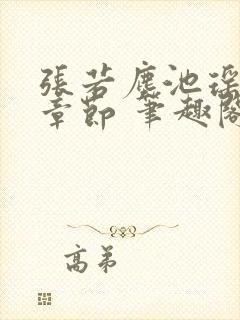 張若塵池瑤
章節 筆趣閣
高弟